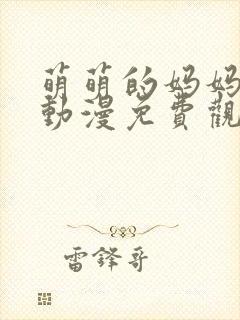 萌萌的妈妈
動漫免費觀
雷鋒哥